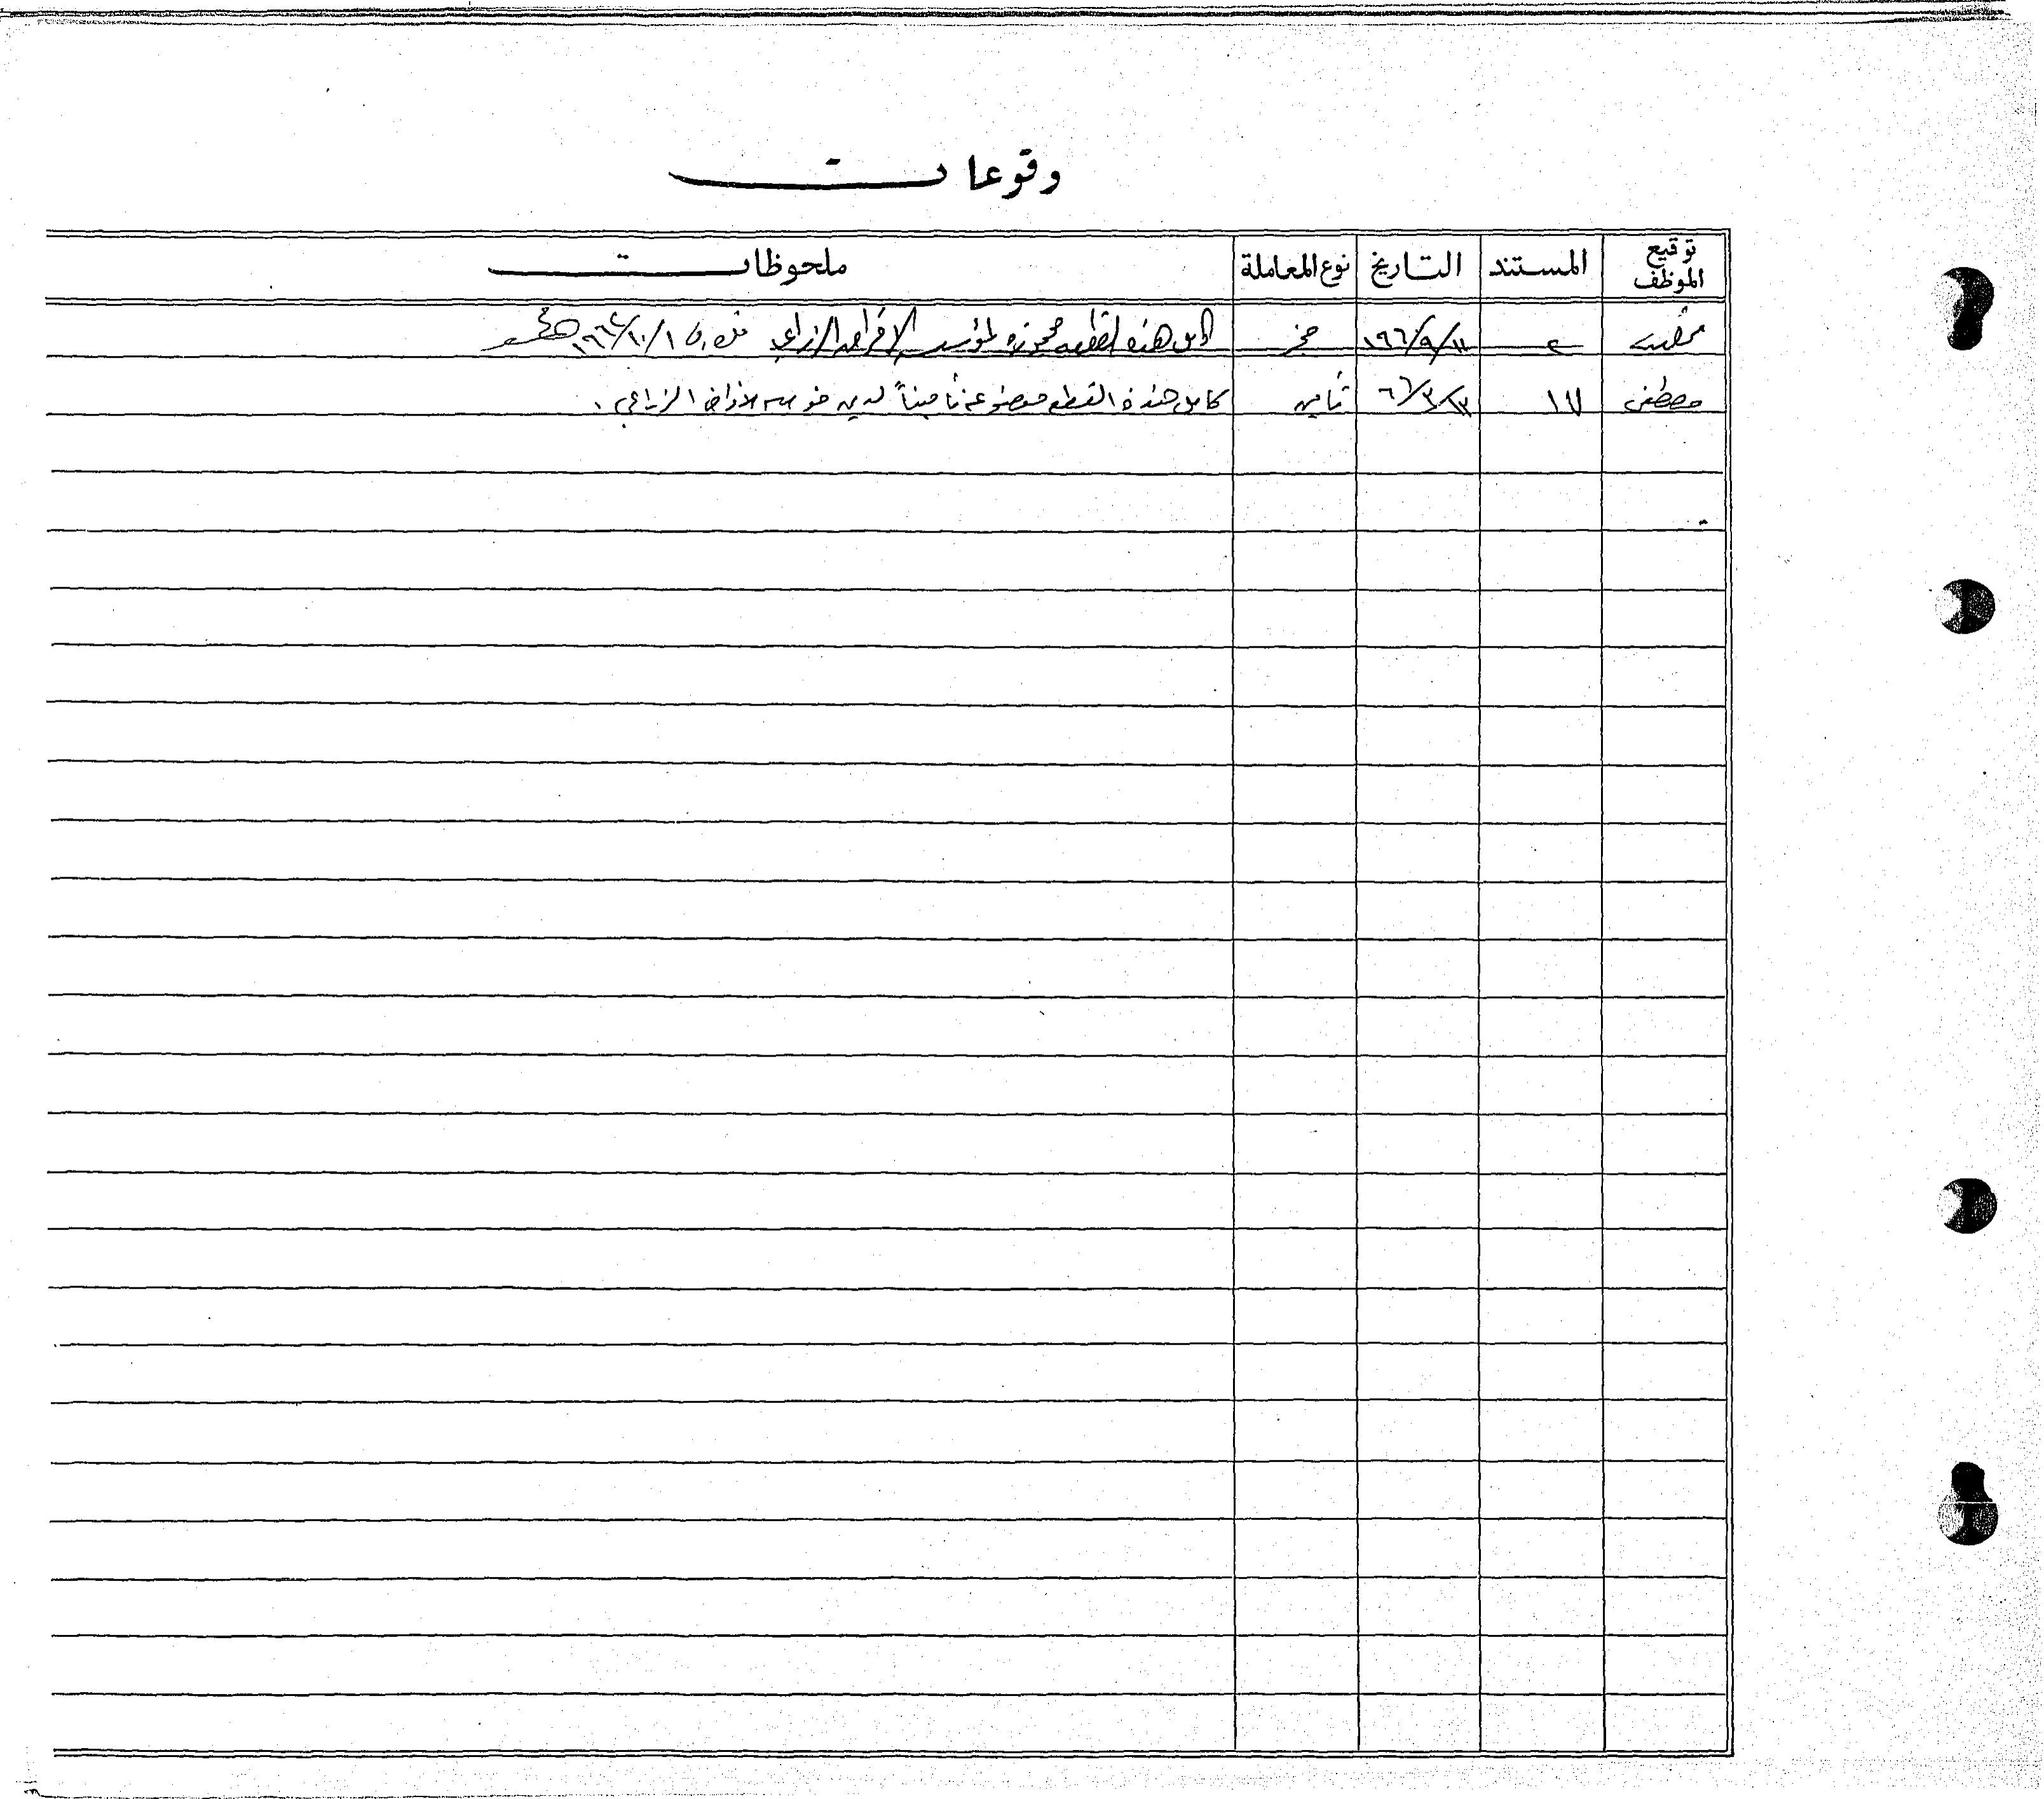 وقوعات
توقيع الموظف المستند التاريخ نوع المعاملة ملحوظات
حجز كامل هذه القطعه محجوزه لمؤسسة الاقراض الزراعي
مصطفى ١٧ تأمين كامل هذه القطع موضوعة تأميناً لدين مؤسسة الاقراض الزراعي .